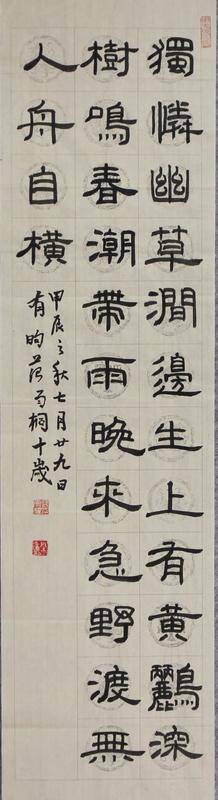 獨憐幽草澗邊生上有黃鸝深
樹鳴春潮帶雨晚來急野渡無
人舟自橫
甲辰之秋七月廿九日
有昀
桐十歲